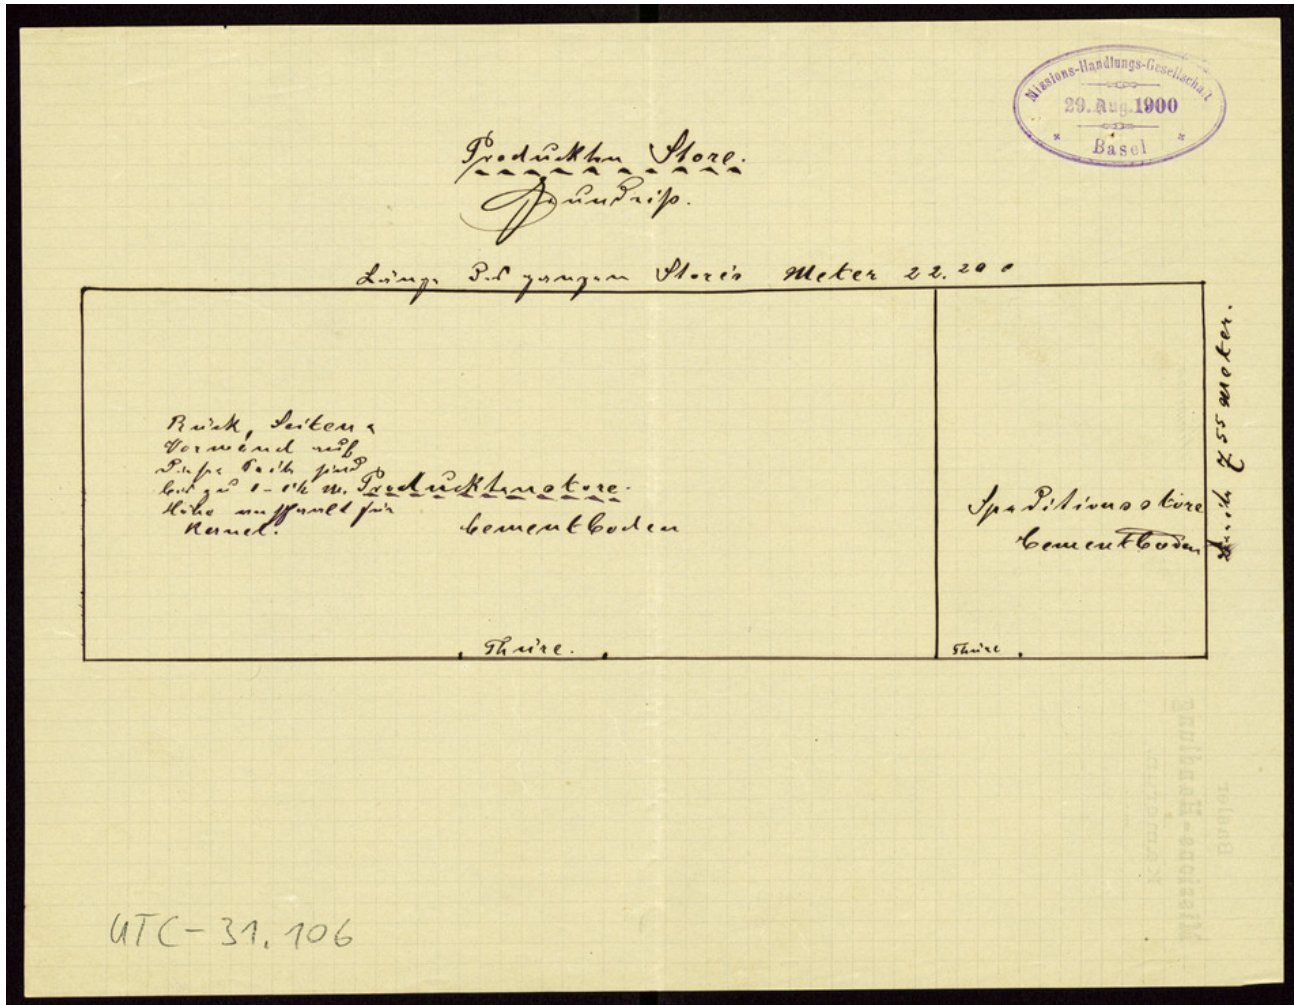 Missions-Handlungs-Gesellschaft
29. Aug. 1900
Basel
Produckten Store.
Grundriß.
Länge des ganzen Store's Meter 22.20
Rück, Seiten
Vorwänd auf
dieser Seite sind
bis zu m.
Höhe für
Kernel.
Producktenstore.
Cementboden
Speditionsstore
Cementboden
Breite 7.55 Meter.
Thüre.
Thüre.
Basler
Missions-Handlung
Kamerun
UTC-31.106